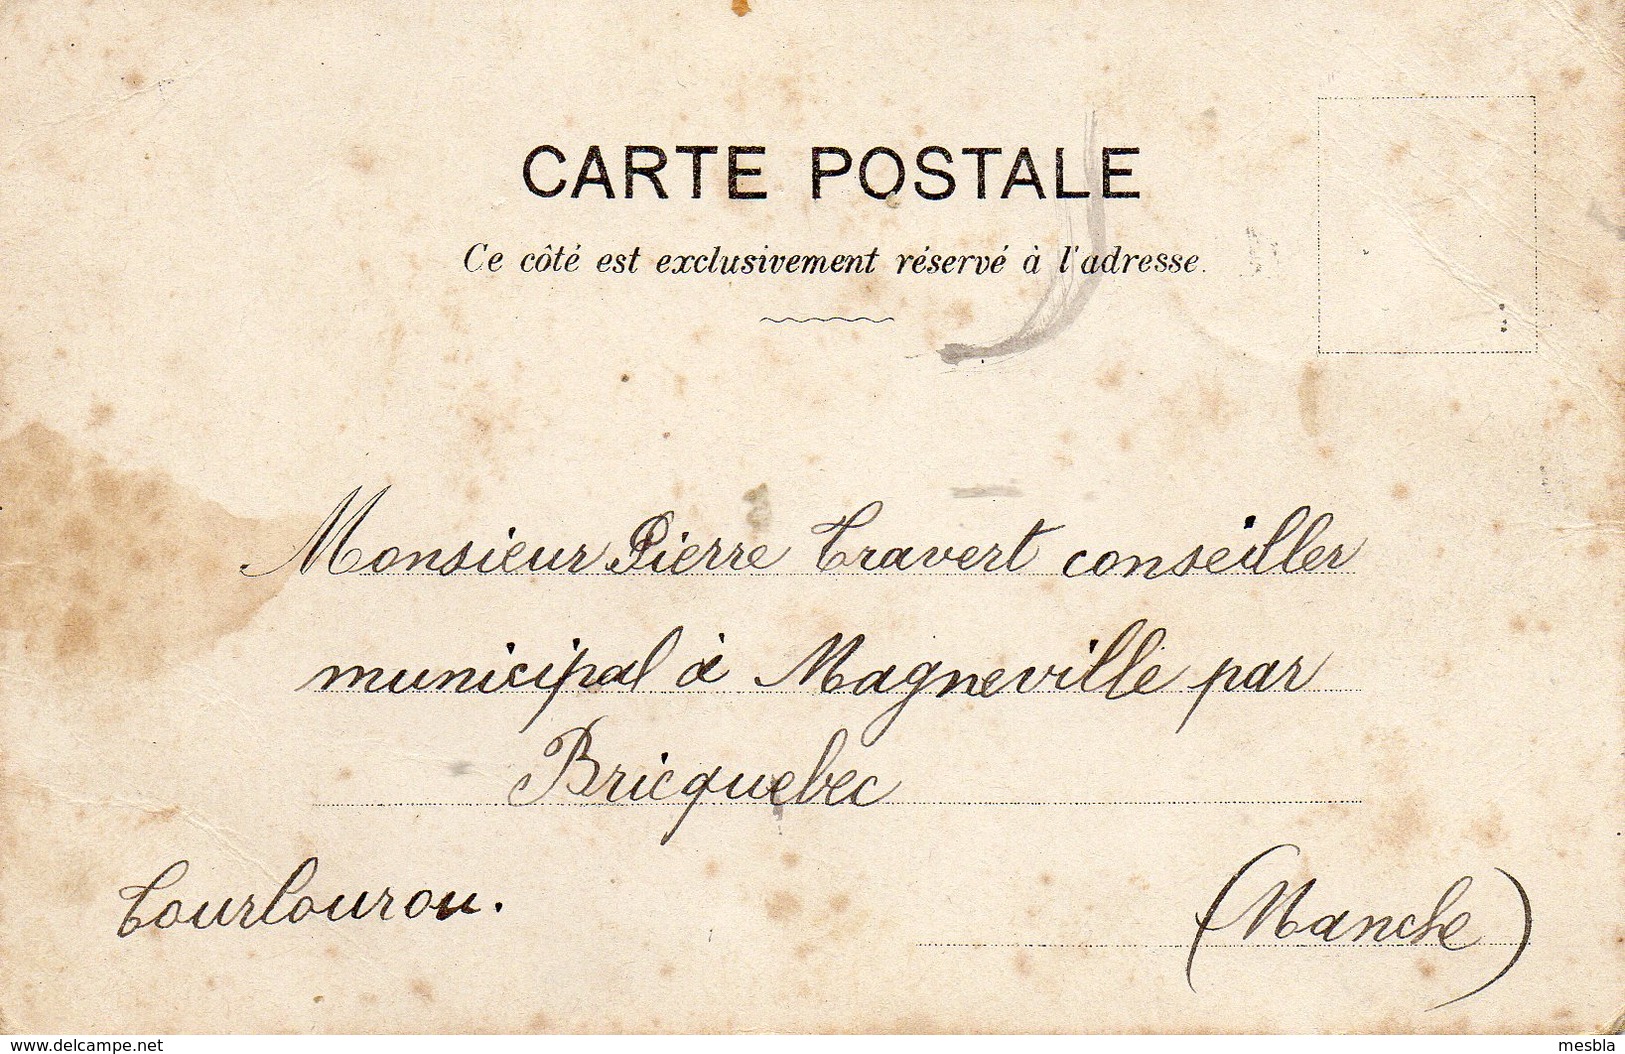 CARTE POSTALE
Ce côté est exclusivement réservé à l'adresse.
Monsieur Pierre Travert conseiller
municipal à Magneville par
Bricquebec
Tourlourou.
(Manche)
www.delcampe.net
mesbla